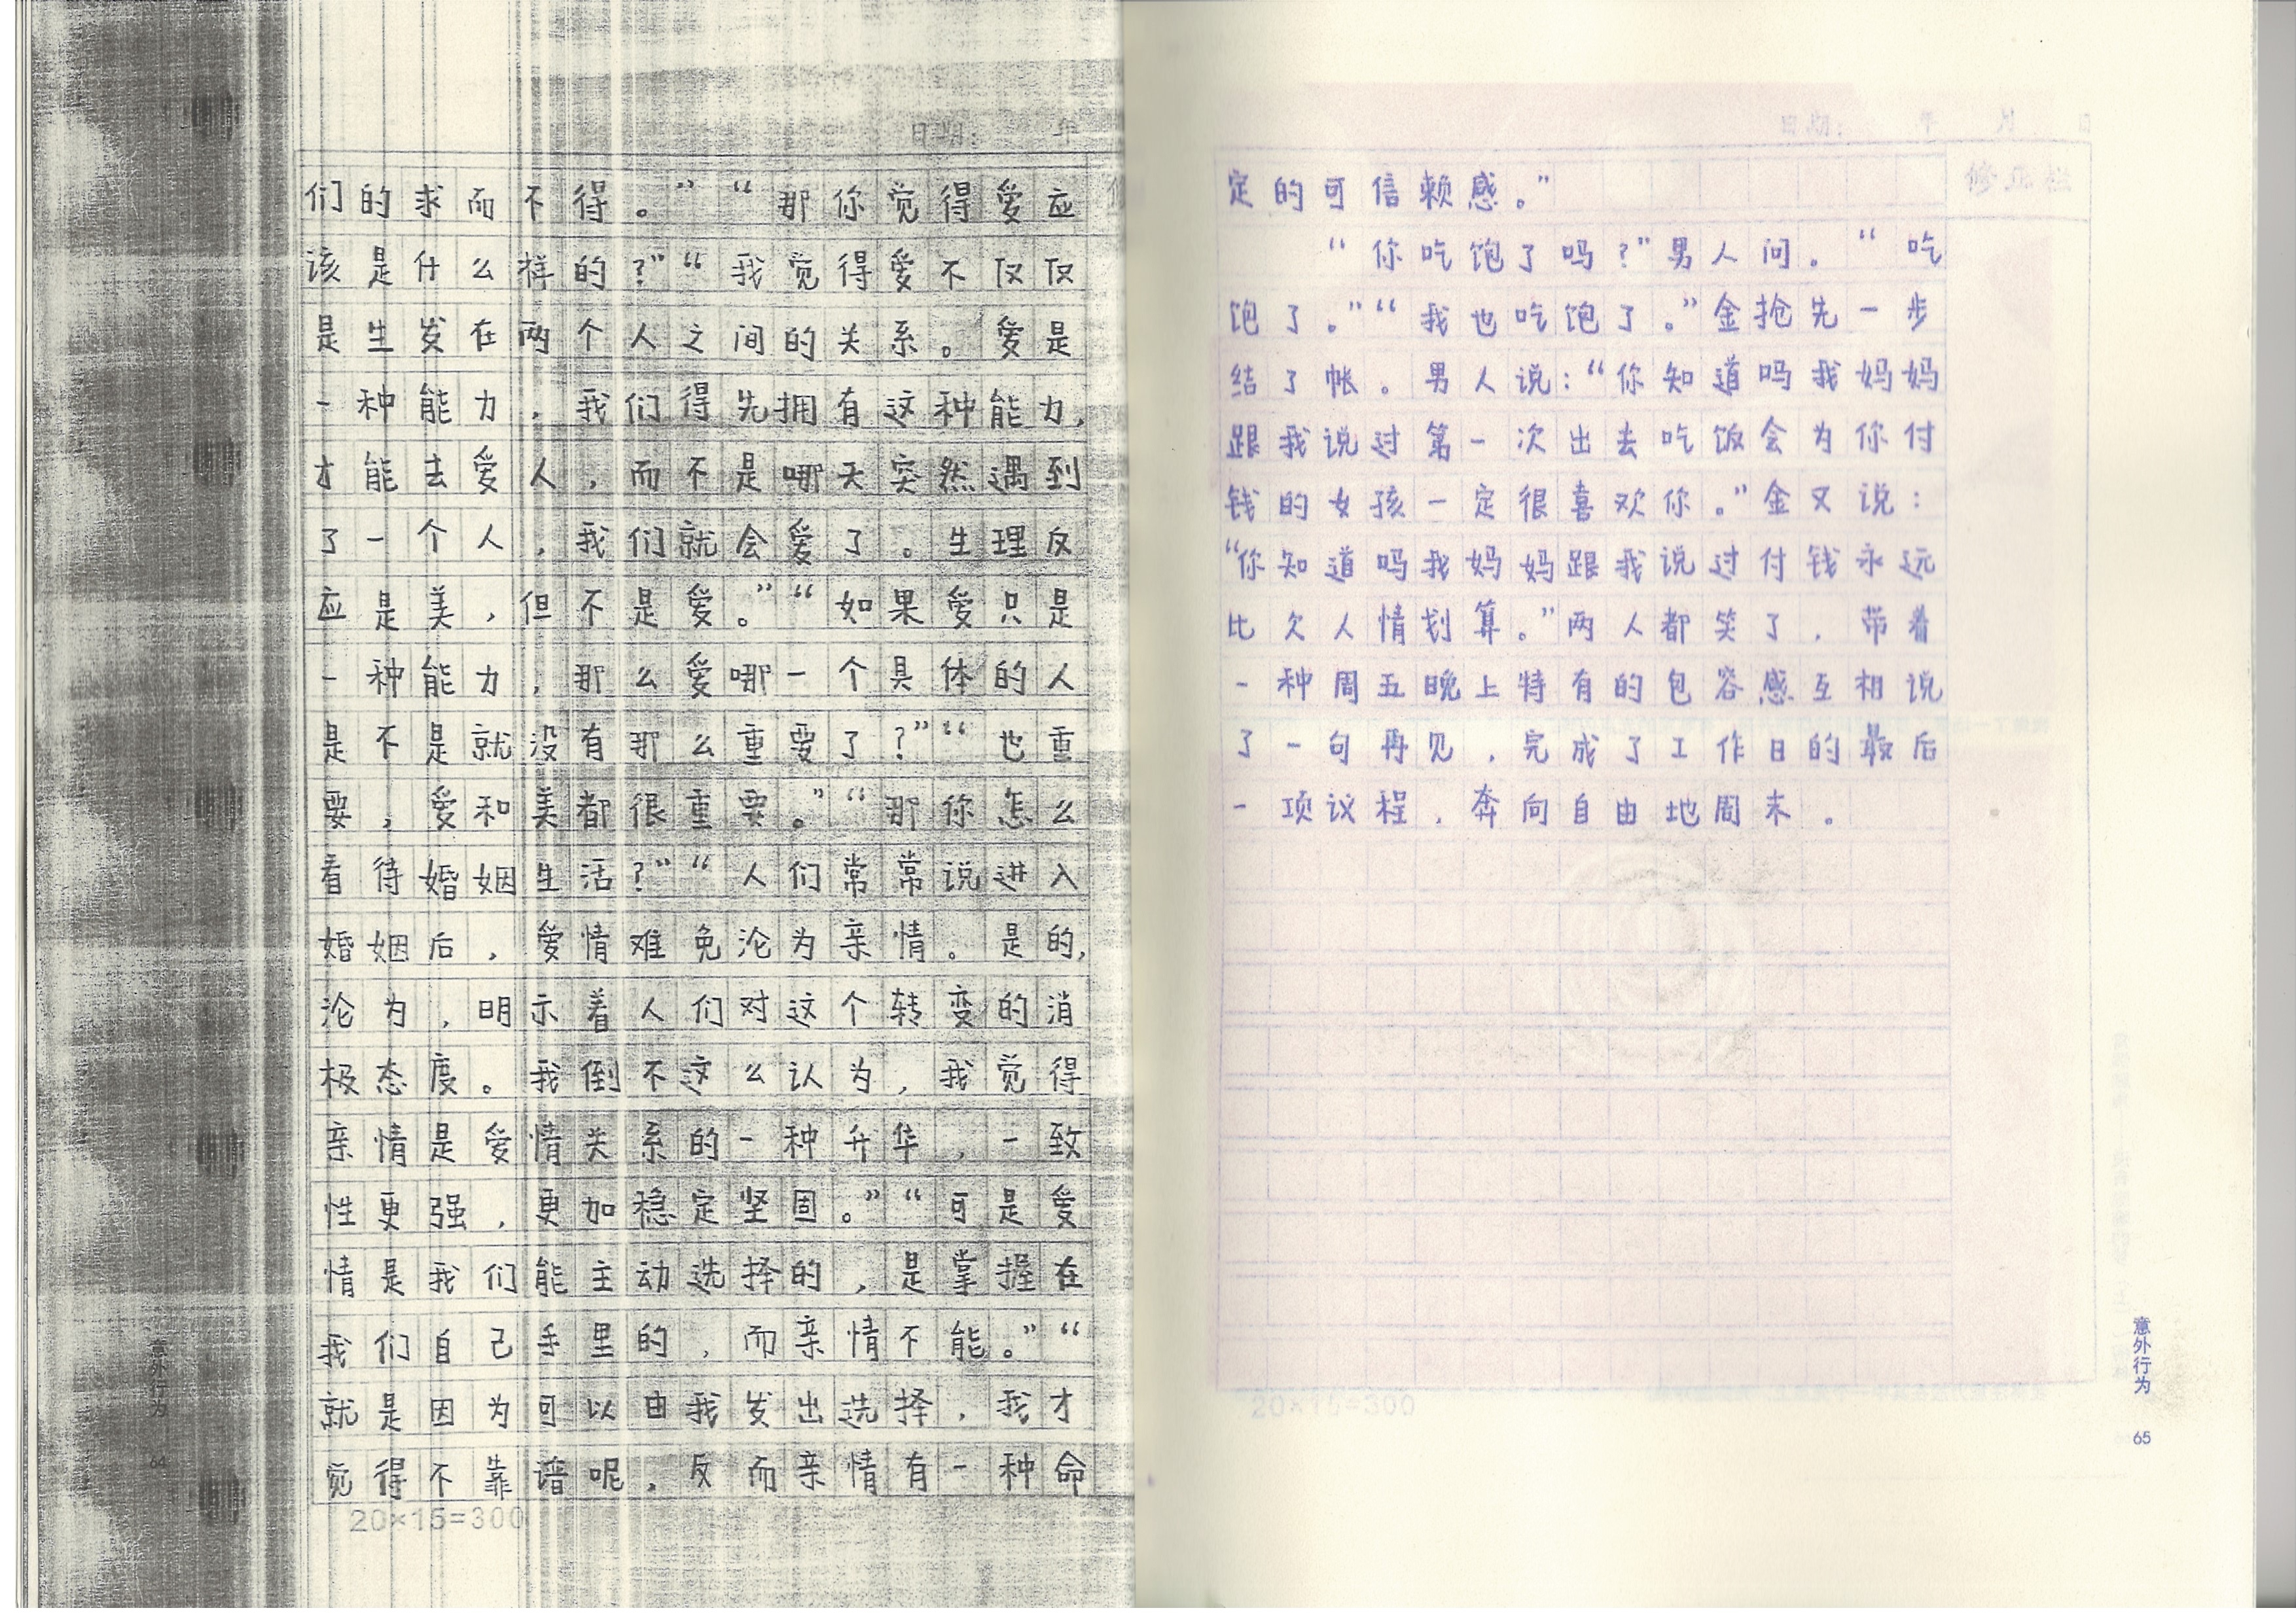 日期： 年
们的求而不得。”“那你觉得爱应
该是什么样的？”“我觉得爱不仅仅
是生发在两个人之间的关系。爱是
一种能力，我们得先拥有这种能力，
才能去爱人，而不是哪天突然遇到
了一个人，我们就会爱了。生理反
应是美，但不是爱。”“如果爱只是
一种能力，那么爱哪一个具体的人
是不是就没有那么重要了？”“也重
要，爱和美都很重要。”“那你怎么
看待婚姻生活？”“人们常常说进入
婚姻后，爱情难免沦为亲情。是的，
沦为，明示着人们对这个转变的消
极态度。我倒不这么认为，我觉得
亲情是爱情关系的一种升华，一致
性更强，更加稳定坚固。”“可是爱
情是我们能主动选择的，是掌握在
我们自己手里的，而亲情不能。”“
就是因为可以由我发出选择，我才
觉得不靠谱呢，反而亲情有一种命
20×15=300
意外行为
64
日期： 年 月 日
修正栏
定的可信赖感。”
“你吃饱了吗？”男人问。“吃
饱了。”“我也吃饱了。”金抢先一步
结了帐。男人说：“你知道吗我妈妈
跟我说过第一次出去吃饭会为你付
钱的女孩一定很喜欢你。”金又说：
“你知道吗我妈妈跟我说过付钱永远
比欠人情划算。”两人都笑了，带着
一种周五晚上特有的包容感互相说
了一句再见，完成了工作日的最后
一项议程，奔向自由地周末。
20×15=300
意外行为
65